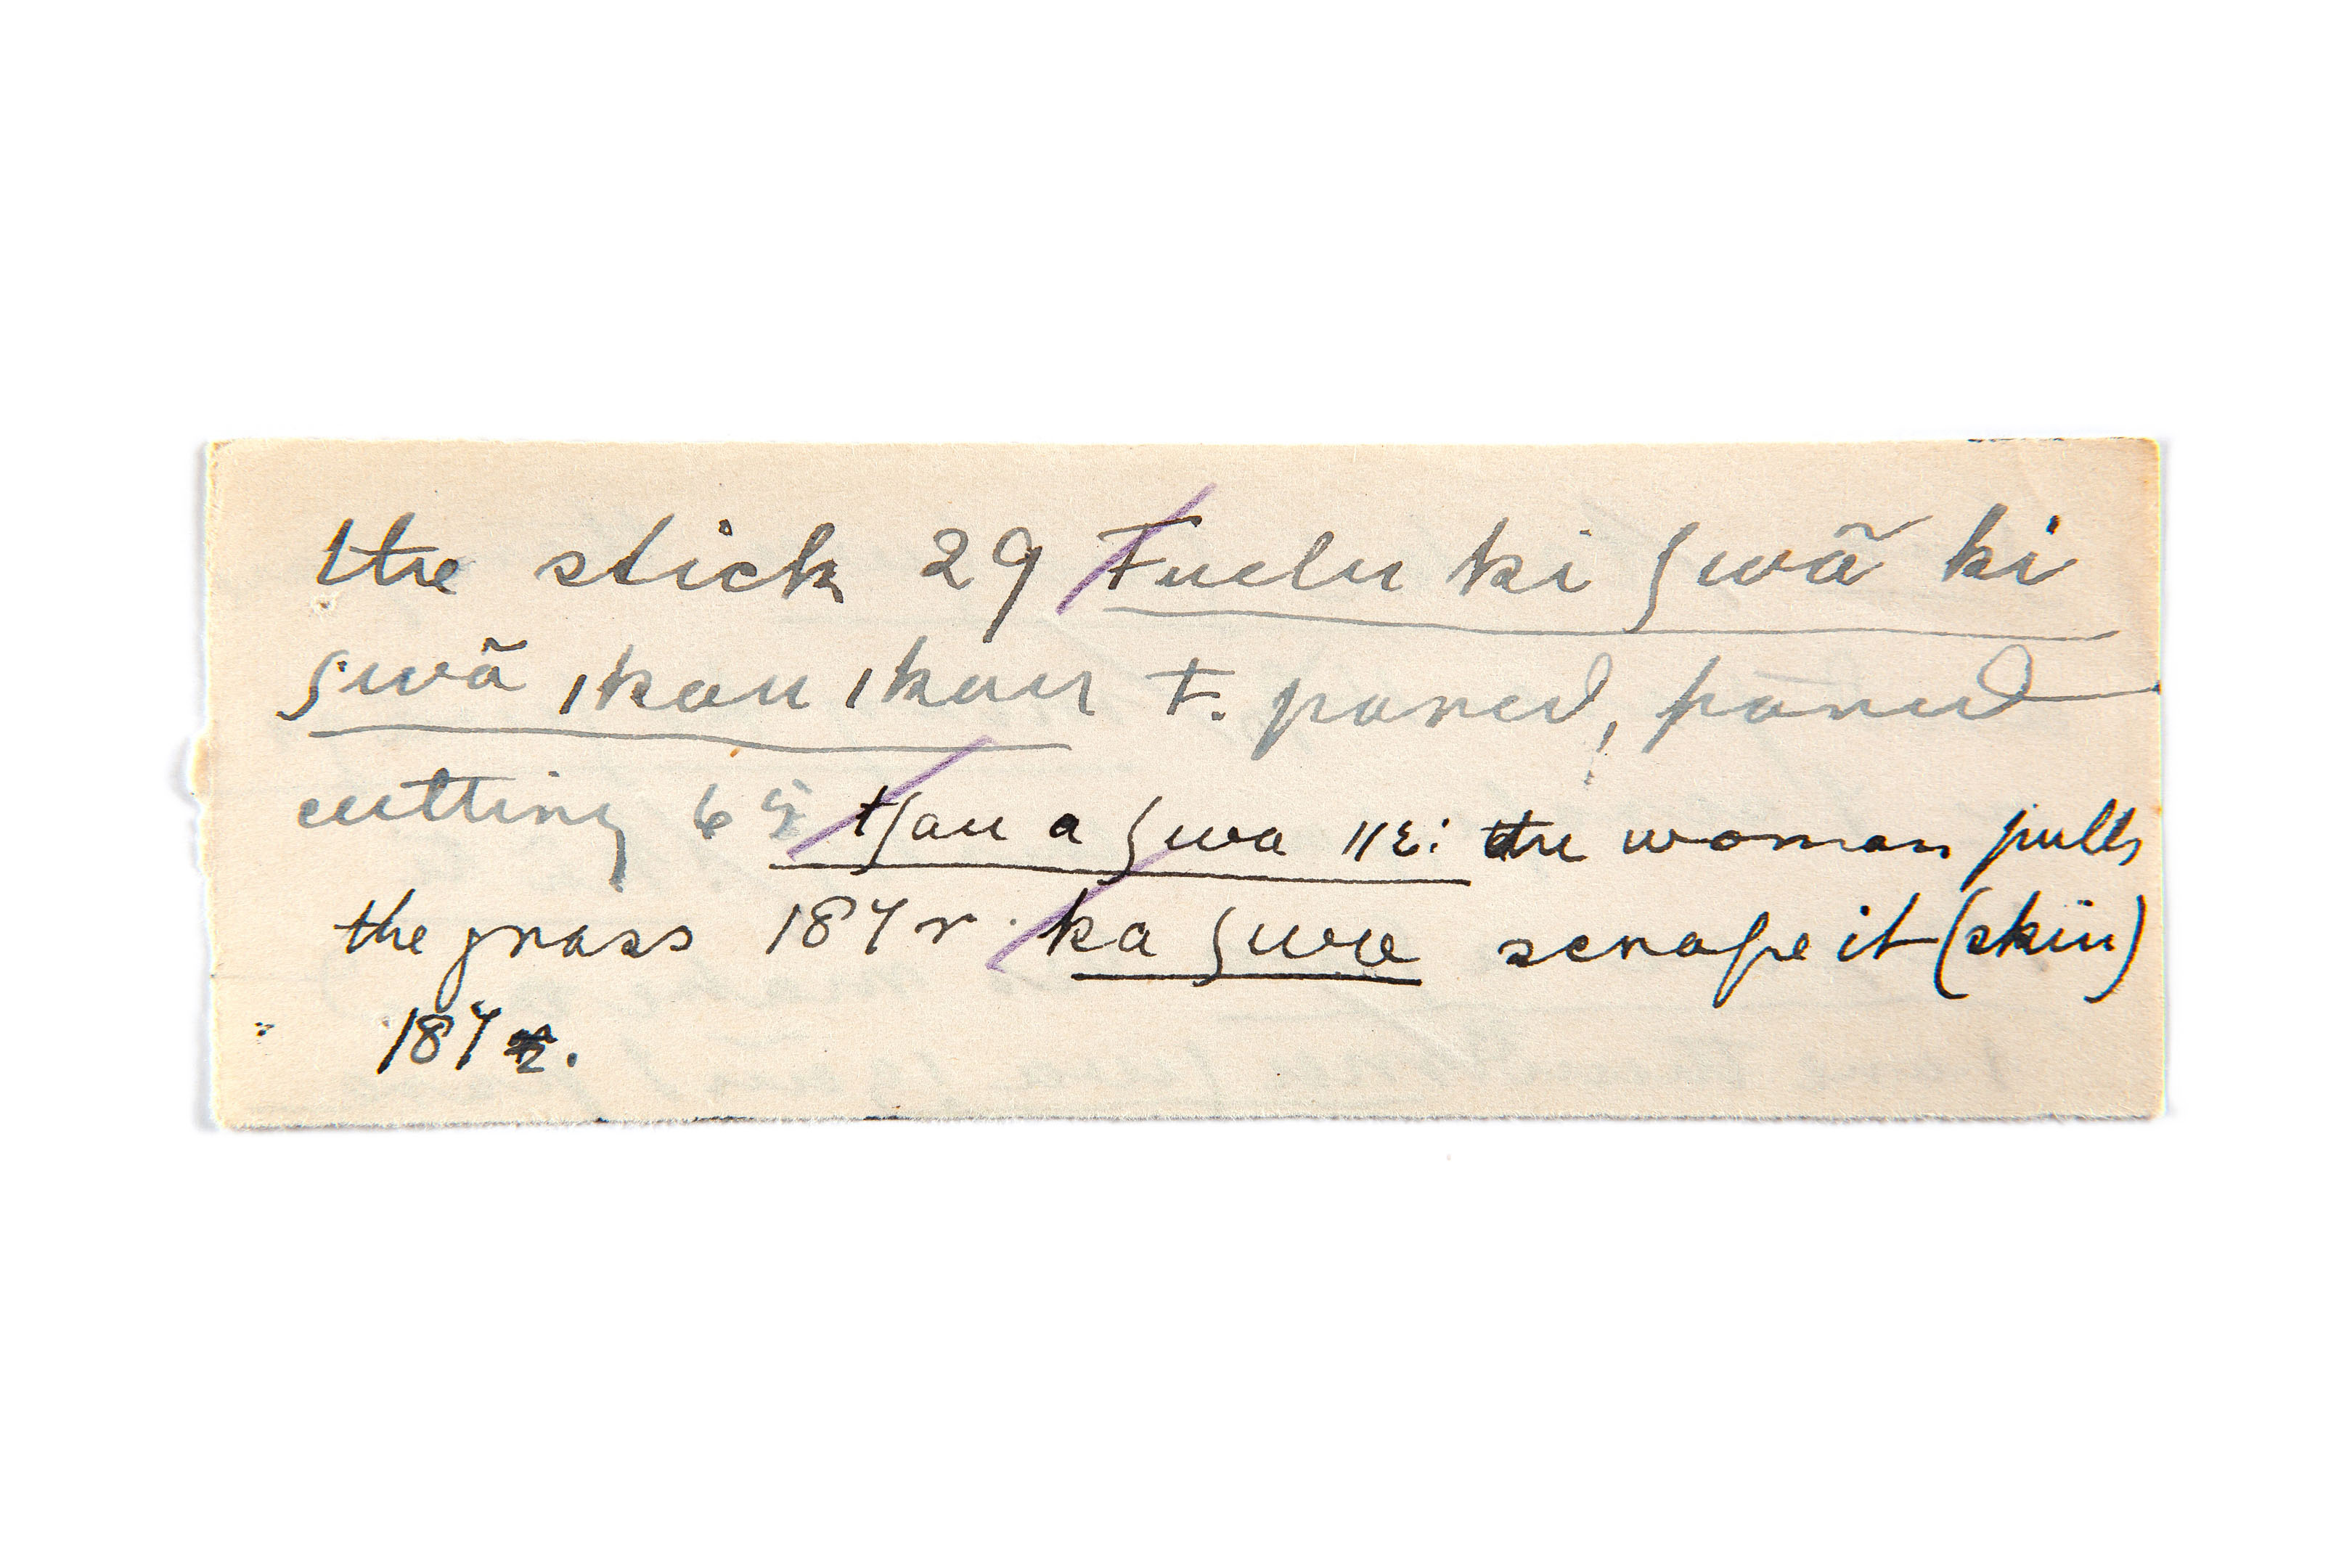 the stick 29 Tuelu ki ʃwã ki
ʃwã ǀkau ǀkau T. pared, pared
cutting 65 tʃau a ʃwa ǁɛ: the woman pulls
the grass 187 r. ka ʃwe scrape it (skin)
187